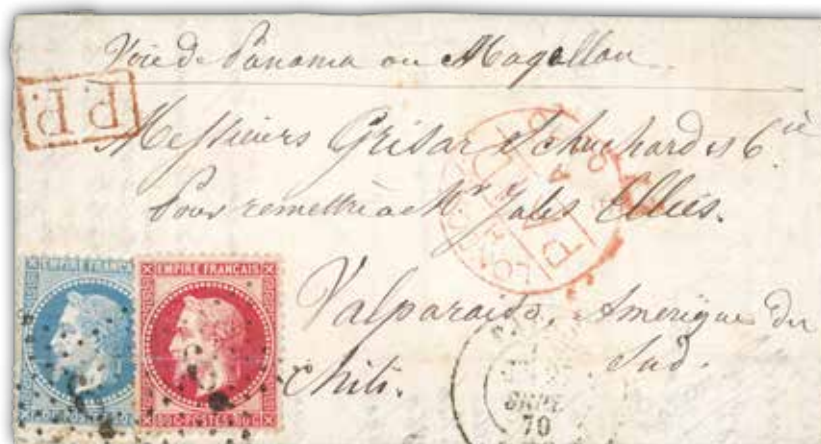 Voie de Panama ou Magellan
P.P.
Messieurs Grisar Schuchard & Cie
Pour remettre à Mr Jules
Valparaiso. Amérique du
Sud.
Chili.
EMPIRE FRANC
EMPIRE FRANÇAIS
80C·POSTES·80C
LON
PAID
SEPT
70